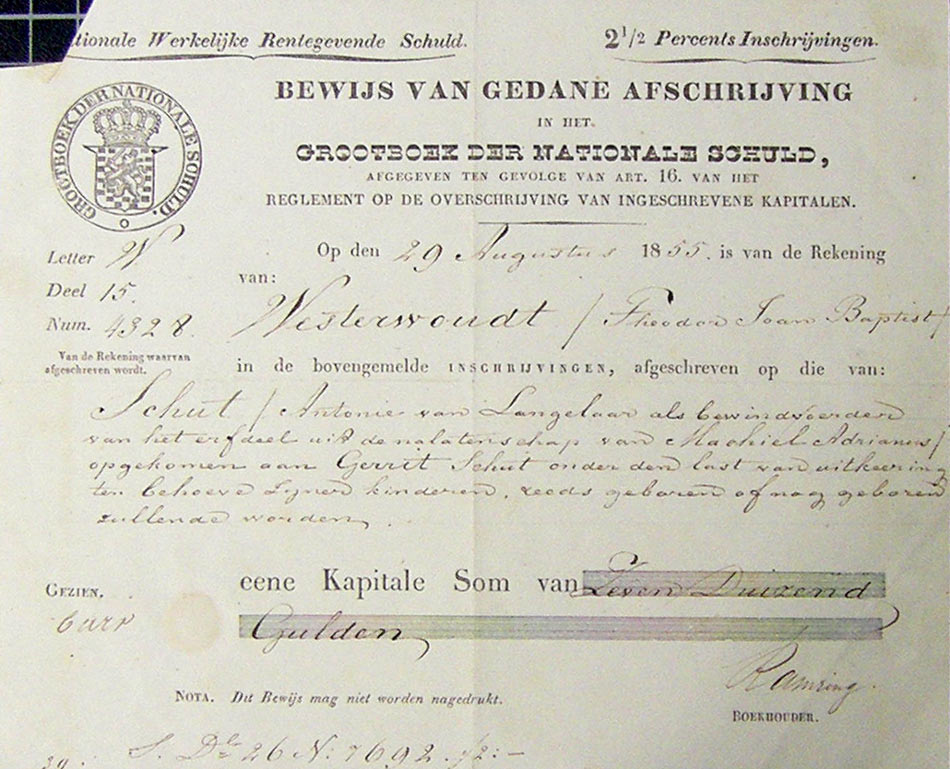 tionale Werkelijke Rentegevende Schuld.
2 1/2 Percents Inschrijvingen.
GROOTBOEK DER NATIONALE SCHULD.
BEWIJS VAN GEDANE AFSCHRIJVING
IN HET
GROOTBOEK DER NATIONALE SCHULD,
AFGEGEVEN TEN GEVOLGE VAN ART. 16. VAN HET
REGLEMENT OP DE OVERSCHRIJVING VAN INGESCHREVENE KAPITALEN.
Letter W.
Deel 15.
Num. 4328.
Van de Rekening waarvan
afgeschreven wordt.
Op den 29 Augustus 1855. is van de Rekening
van:
Westerwoudt / Theodor Joan Baptist /
in de bovengemelde INSCHRIJVINGEN, afgeschreven op die van:
Schut / Antonie van Langelaar als bewindvoerder
van het erfdeel uit de nalatenschap van Machiel Adrianus /
opgekomen aan Gerrit Schut onder den last van uitkeering
ten behoeve zijner kinderen, reeds geboren of nog geboren
zullende worden,
GEZIEN.
eene Kapitale Som van Zeven Duizend
Gulden
NOTA. Dit Bewijs mag niet worden nagedrukt.
BOEKHOUDER.
S. Dl 26 N. 7692